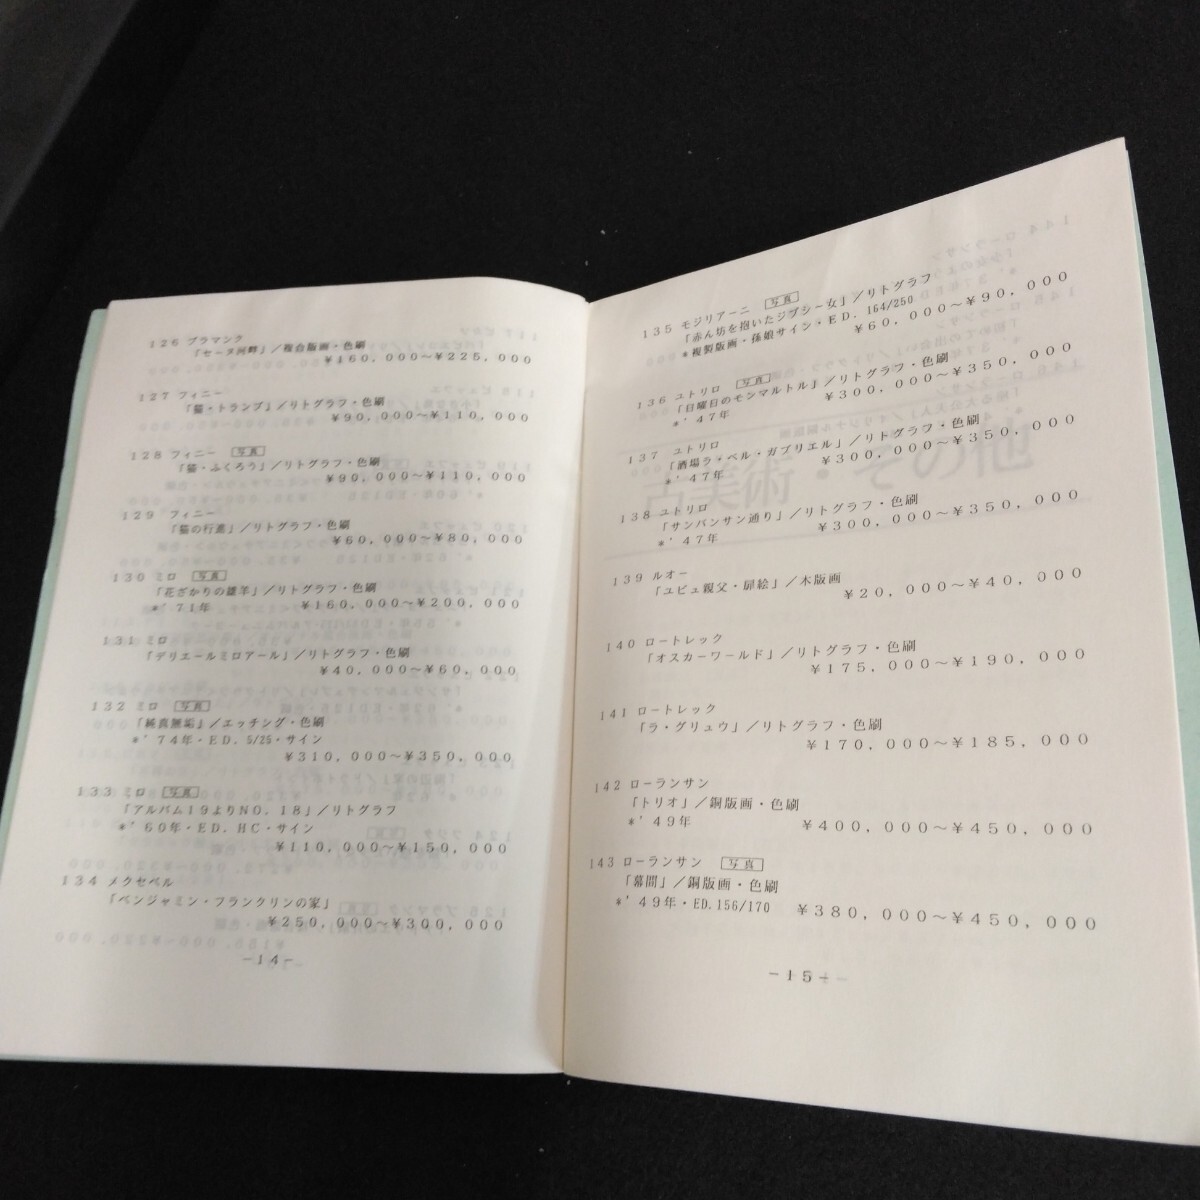 126 ブラマンク
「セーヌ河畔」／複合版画・色刷
￥160,000～￥225,000
127 フィニー
「猫・トランプ」／リトグラフ・色刷
￥90,000～￥110,000
128 フィニー 写真
「猫・ふくろう」／リトグラフ・色刷
￥90,000～￥110,000
129 フィニー
「猫の行進」／リトグラフ・色刷
￥60,000～￥80,000
130 ミロ 写真
「花ざかりの雄羊」／リトグラフ・色刷
*’71年 ￥160,000～￥200,000
131 ミロ
「デリエールミロアール」／リトグラフ・色刷
￥40,000～￥60,000
132 ミロ 写真
「純真無垢」／エッチング・色刷
*’74年・ED. 5/25・サイン
￥310,000～￥350,000
133 ミロ 写真
「アルバム19よりNO. 18」／リトグラフ
*’60年・ED. HC・サイン
￥110,000～￥150,000
134 メクセペル
「ベンジャミン・フランクリンの家」
￥250,000～￥300,000
－14－
135 モジリアーニ 写真
「赤ん坊を抱いたジプシー女」／リトグラフ
*複製版画・孫娘サイン・ED. 164/250
￥60,000～￥90,000
136 ユトリロ 写真
「日曜日のモンマルトル」／リトグラフ・色刷
*’47年 ￥300,000～￥350,000
137 ユトリロ
「酒場ラ・ベル・ガブリエル」／リトグラフ・色刷
*’47年 ￥300,000～￥350,000
138 ユトリロ
「サンバンサン通り」／リトグラフ・色刷
*’47年 ￥300,000～￥350,000
139 ルオー
「ユビュ親父・扉絵」／木版画
￥20,000～￥40,000
140 ロートレック
「オスカーワールド」／リトグラフ・色刷
￥175,000～￥190,000
141 ロートレック
「ラ・グリュウ」／リトグラフ・色刷
￥170,000～￥185,000
142 ローランサン
「トリオ」／銅版画・色刷
*’49年 ￥400,000～￥450,000
143 ローランサン 写真
「幕間」／銅版画・色刷
*’49年・ED.156/170 ￥380,000～￥450,000
－15－